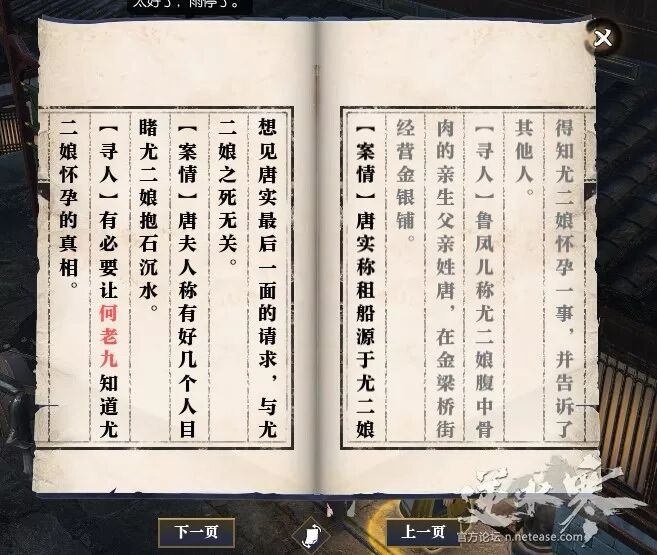 太好了，雨停了。
得知尤二娘怀孕一事，并告诉了
其他人。
【寻人】鲁凤儿称尤二娘腹中骨
肉的亲生父亲姓唐，在金梁桥街
经营金银铺。
【案情】唐实称租船源于尤二娘
想见唐实最后一面的请求，与尤
二娘之死无关。
【案情】唐夫人称有好几个人目
睹尤二娘抱石沉水。
【寻人】有必要让何老九知道尤
二娘怀孕的真相。
下一页
上一页
逆水寒
官方论坛 n.netease.com